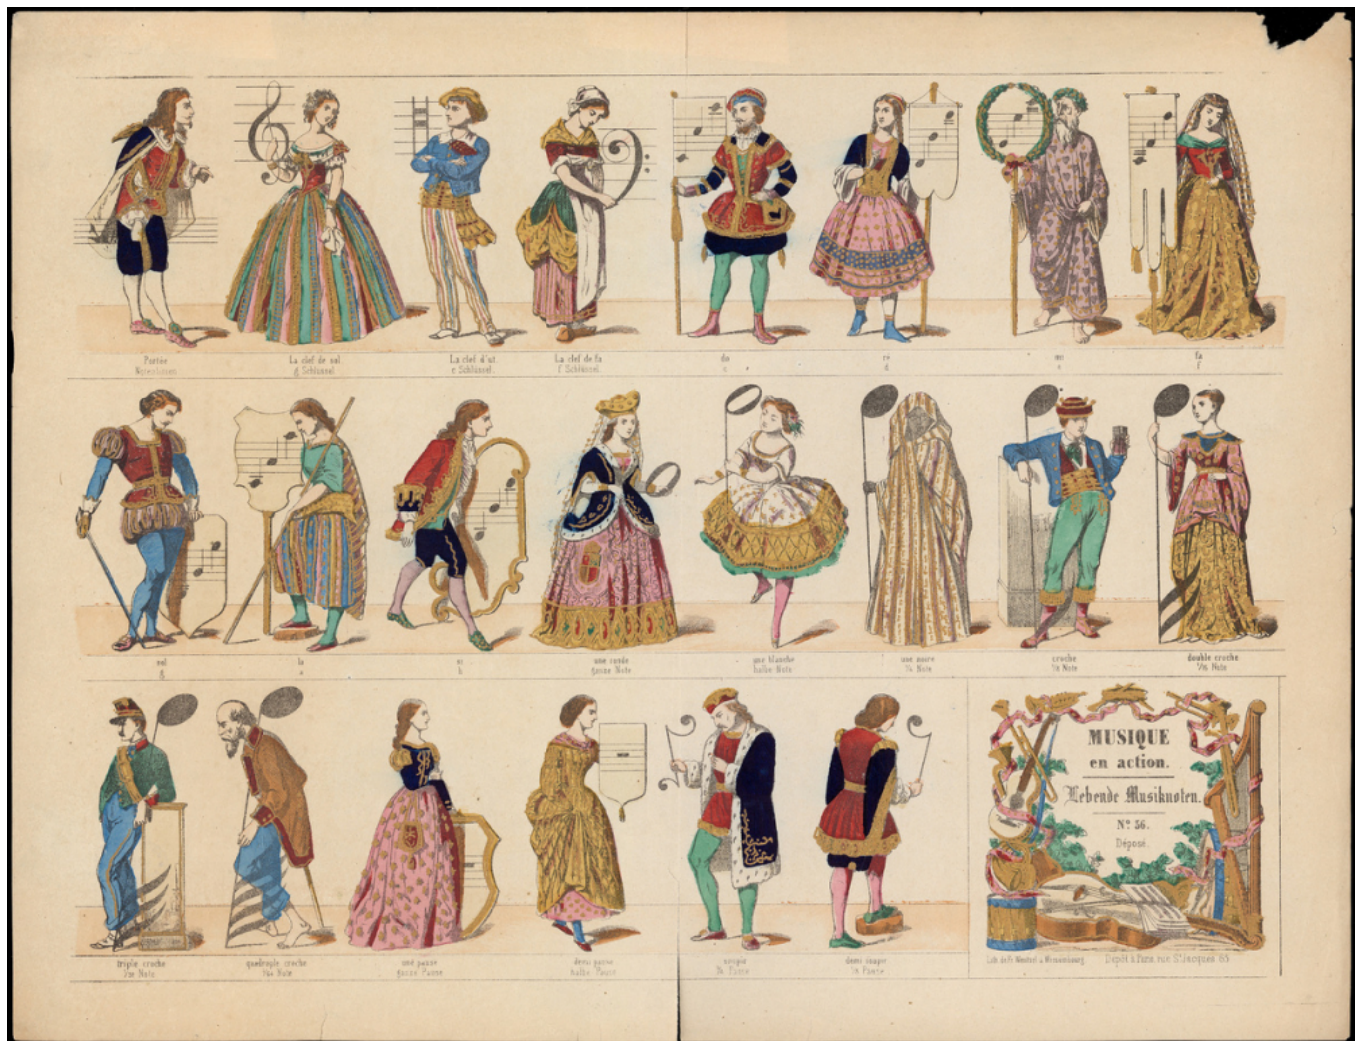 Portée
Notenlinien
La clef de sol.
g Schlüssel.
La clef d'ut.
c Schlüssel.
La clef de fa
f Schlüssel.
do
c
ré
d
mi
e
fa
f
sol
g
la
a
si
h
une ronde
ganze Note
une blanche
halbe Note
une noire
¼ Note
croche
⅛ Note
double croche
1/16 Note
triple croche
1/32 Note
quadruple croche
1/64 Note
une pause
ganze Pause
demi pause
halbe Pause
soupir
¼ Pause
demi soupir
⅛ Pause
MUSIQUE
en action.
Lebende Musiknoten.
Nº 56.
Déposé.
Lith. de Fr. Wentzel à Wissembourg.
Dépôt à Paris, rue St. Jacques 65